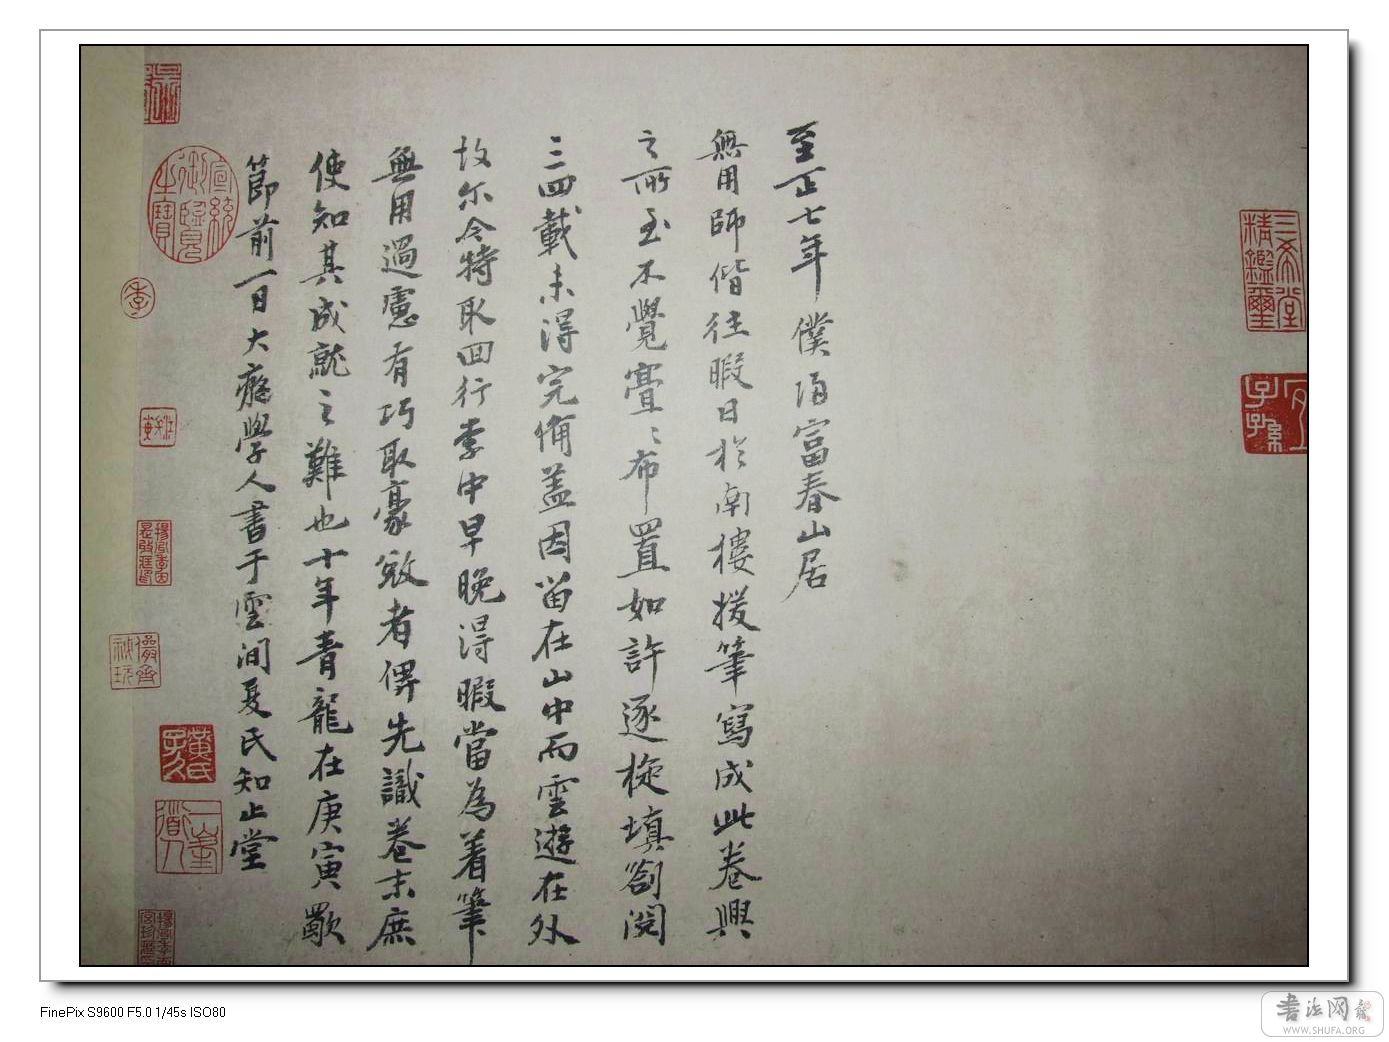 至正七年僕歸富春山居
無用師偕往暇日於南樓援筆寫成此卷興
之所至不覺亹亹布置如許逐旋填劄閱
三四載未得完備蓋因留在山中而雲遊在外
故尔今特取回行李中早晚得暇當為着筆
無用過慮有巧取豪敚者俾先識卷末庶
使知其成就之難也十年青龍在庚寅歜
節前一日大癡學人書于雲間夏氏知止堂
三希堂
精鑑璽
宜
子孫
宣統
御覽
之寶
季
黃氏
子久
一峯
道人
FinePix S9600 F5.0 1/45s ISO80
书法网
WWW.SHUFA.ORG